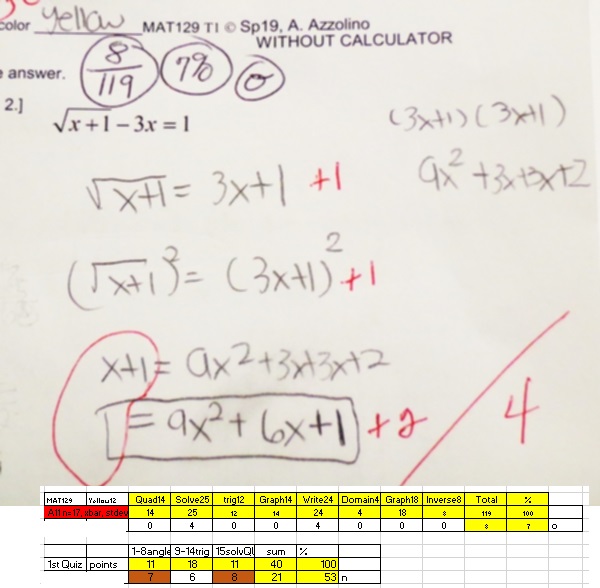 color Yellow MAT129 TI © Sp19, A. Azzolino
WITHOUT CALCULATOR
e answer. 8/119 7% 0
2.]
√x+1 − 3x = 1
(3x+1)(3x+1)
9x² +3x+3x+2
√x+1 = 3x+1 +1
(√x+1)² = (3x+1)² +1
x+1 = 9x²+3x+3x+2
1 = 9x²+6x+1 +2
4
MAT129 Yellow12 Quad14 Solve25 trig12 Graph14 Write24 Domain4 Graph18 Inverse8 Total %
A11 n=17 xbar, stdev 14 25 12 14 24 4 18 8 119 100
0 4 0 0 4 0 0 0 8 7 o
1-8angle 9-14trig 15solvQU sum %
1st Quiz points 11 18 11 40 100
7 6 8 21 53 n